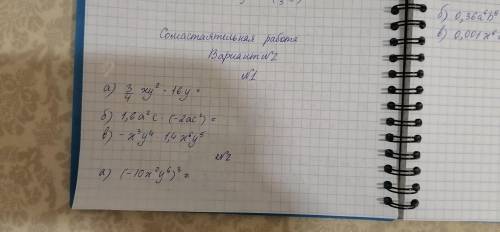 Самостаятельная работа
Вариант N2
N1
а) 3/4 xy² · 16y =
б) 1,6a²c · (-2ac⁴) =
в) -x³y⁴ · 1,4x⁶y⁵
N2
а) (-10x²y⁶)³ =
б) 0,36a
в) 0,001x